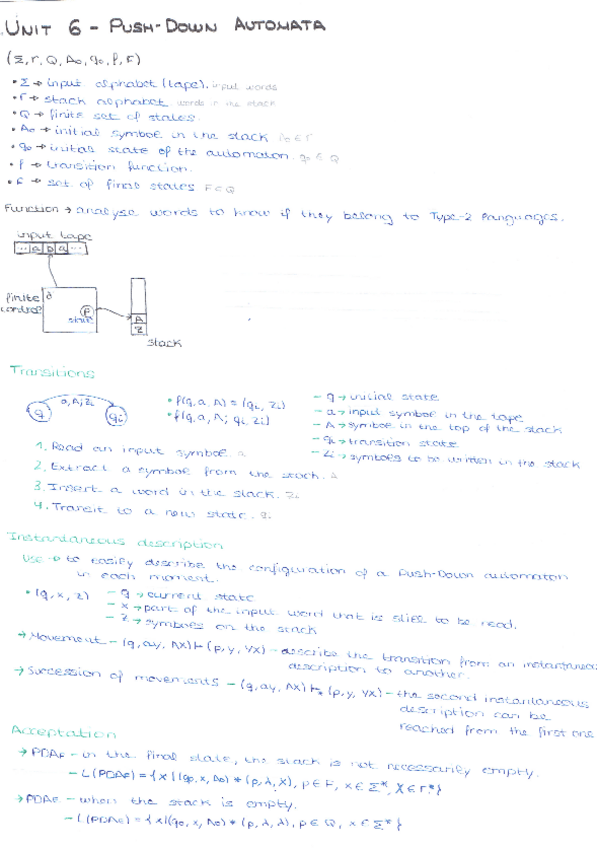 UNIT 6 - PUSH-DOWN AUTOMATA
(Σ, Γ, Q, A₀, q₀, f, F)
• Σ → input alphabet (tape). input words
• Γ → stack alphabet. words in the stack
• Q → finite set of states.
• A₀ → initial symbol in the stack A₀ ∈ Γ
• q₀ → initial state of the automaton. q₀ ∈ Q
• f → transition function.
• F → set of final states F ⊂ Q
Function → analyse words to know if they belong to Type-2 languages.
input tape
... a b a ...
finite
control
state
A
Z
stack
Transitions
a, A; Zi
q
qi
• f(q, a, A) = (qi, Zi)
• f(q, a, A; qi, Zi)
- q → initial state
- a → input symbol in the tape
- A → symbol in the top of the stack
- qi → transition state
- Zi → symbols to be written in the stack
1. Read an input symbol. a
2. Extract a symbol from the stack. A
3. Insert a word in the stack. Zi
4. Transit to a new state. qi
Instantaneous description
Use → to easily describe the configuration of a Push-Down automaton
in each moment.
• (q, x, z)
- q → current state
- x → part of the input word that is still to be read.
- z → symbols on the stack
→ Movement - (q, ay, AX) ⊢ (p, y, YX) - describe the transition from an instantaneous
description to another.
→ Succession of movements - (q, ay, AX) ⊢* (p, y, YX) - the second instantaneous
description can be
reached from the first one
Acceptation
→ PDAF - in the final state, the stack is not necessarily empty.
- L(PDAF) = { x | (q₀, x, A₀) * (p, λ, X), p ∈ F, x ∈ Σ*, X ∈ Γ* }
→ PDAE - when the stack is empty.
- L(PDAE) = { x | (q₀, x, A₀) * (p, λ, λ), p ∈ Q, x ∈ Σ* }